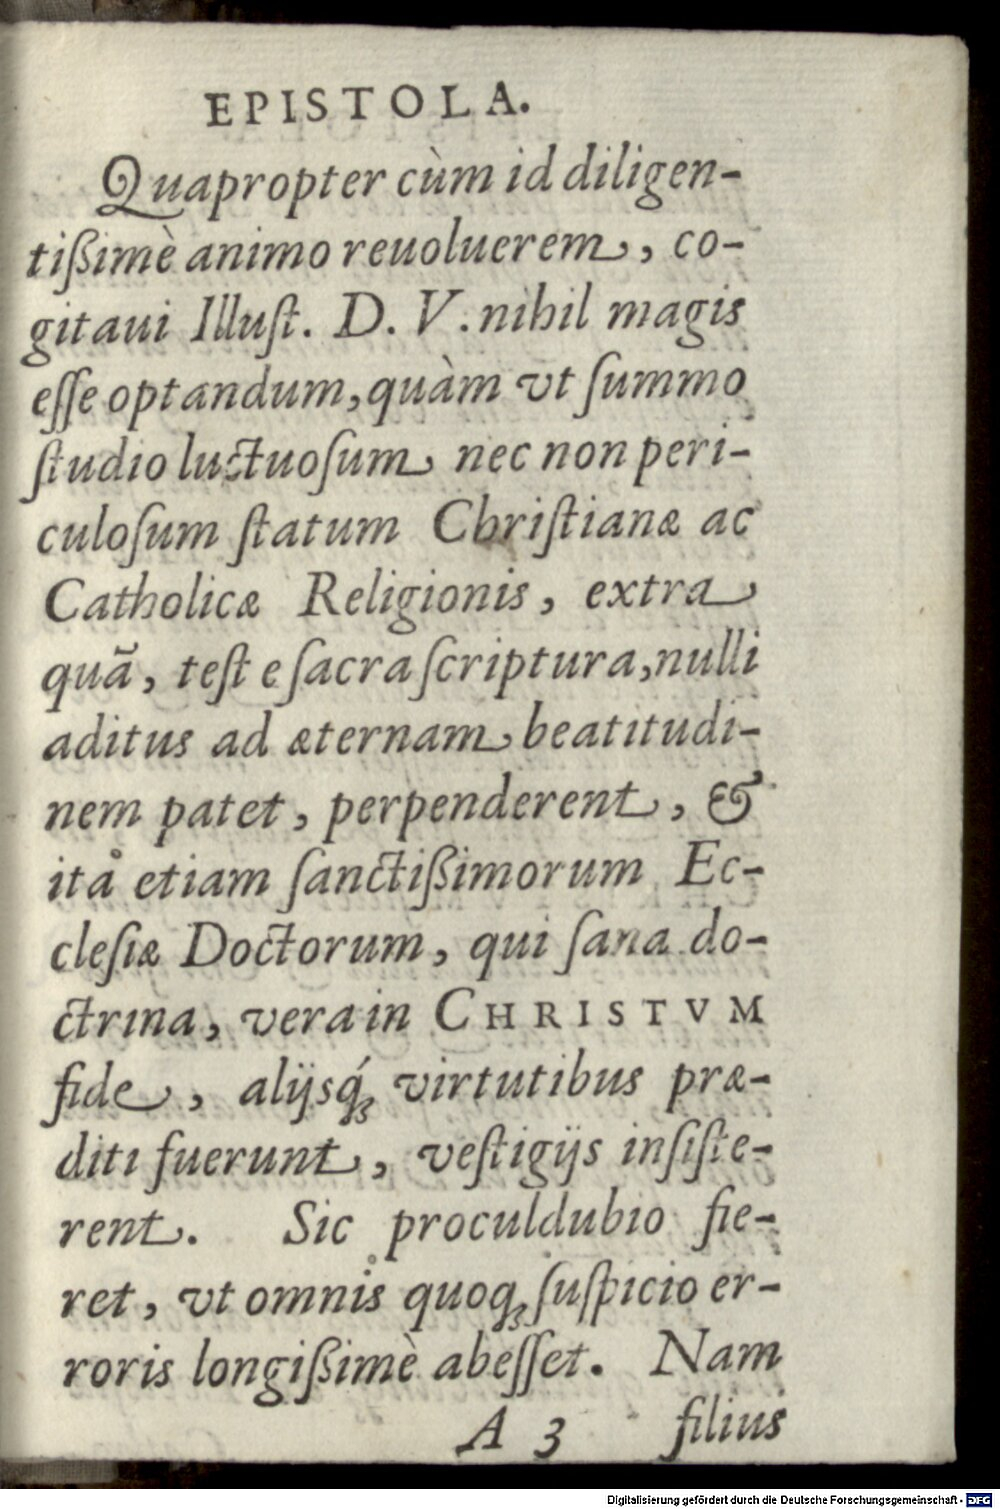 EPISTOLA.
Quapropter cùm id diligen-
tißimè animo reuoluerem, co-
gitaui Illust. D. V. nihil magis
esse optandum, quàm vt summo
studio luctuosum nec non peri-
culosum statum Christianæ ac
Catholicæ Religionis, extra
quã, teste sacra scriptura, nulli
aditus ad æternam beatitudi-
nem patet, perpenderent, &
itå etiam sanctißimorum Ec-
clesiæ Doctorum, qui sana do-
ctrina, vera in CHRISTVM
fide, alijsq́ꝫ virtutibus præ-
diti fuerunt, vestigijs insiste-
rent. Sic proculdubio fie-
ret, vt omnis quoqꝫ suspicio er-
roris longißimè abesset. Nam
A 3 filius
Digitalisierung gefördert durch die Deutsche Forschungsgemeinschaft - DFG